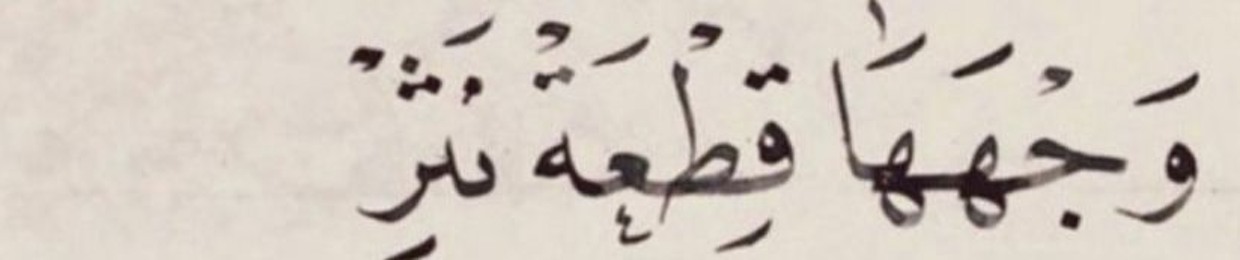 وَجْهَهَا قِطْعَةْ نَثْرِ